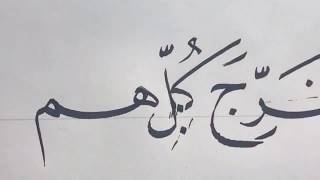 فَرِّجَ كُلِّ هم